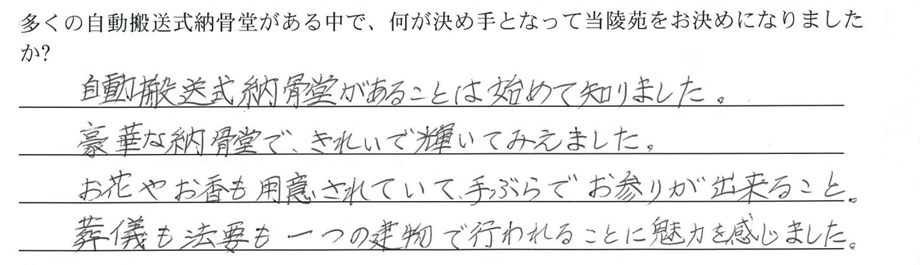 多くの自動搬送式納骨堂がある中で、何が決め手となって当陵苑をお決めになりました
か?
自動搬送式納骨堂があることは始めて知りました。
豪華な納骨堂で、きれいで輝いてみえました。
お花やお香も用意されていて、手ぶらでお参りが出来ること。
葬儀も法要も一つの建物で行われることに魅力を感じました。